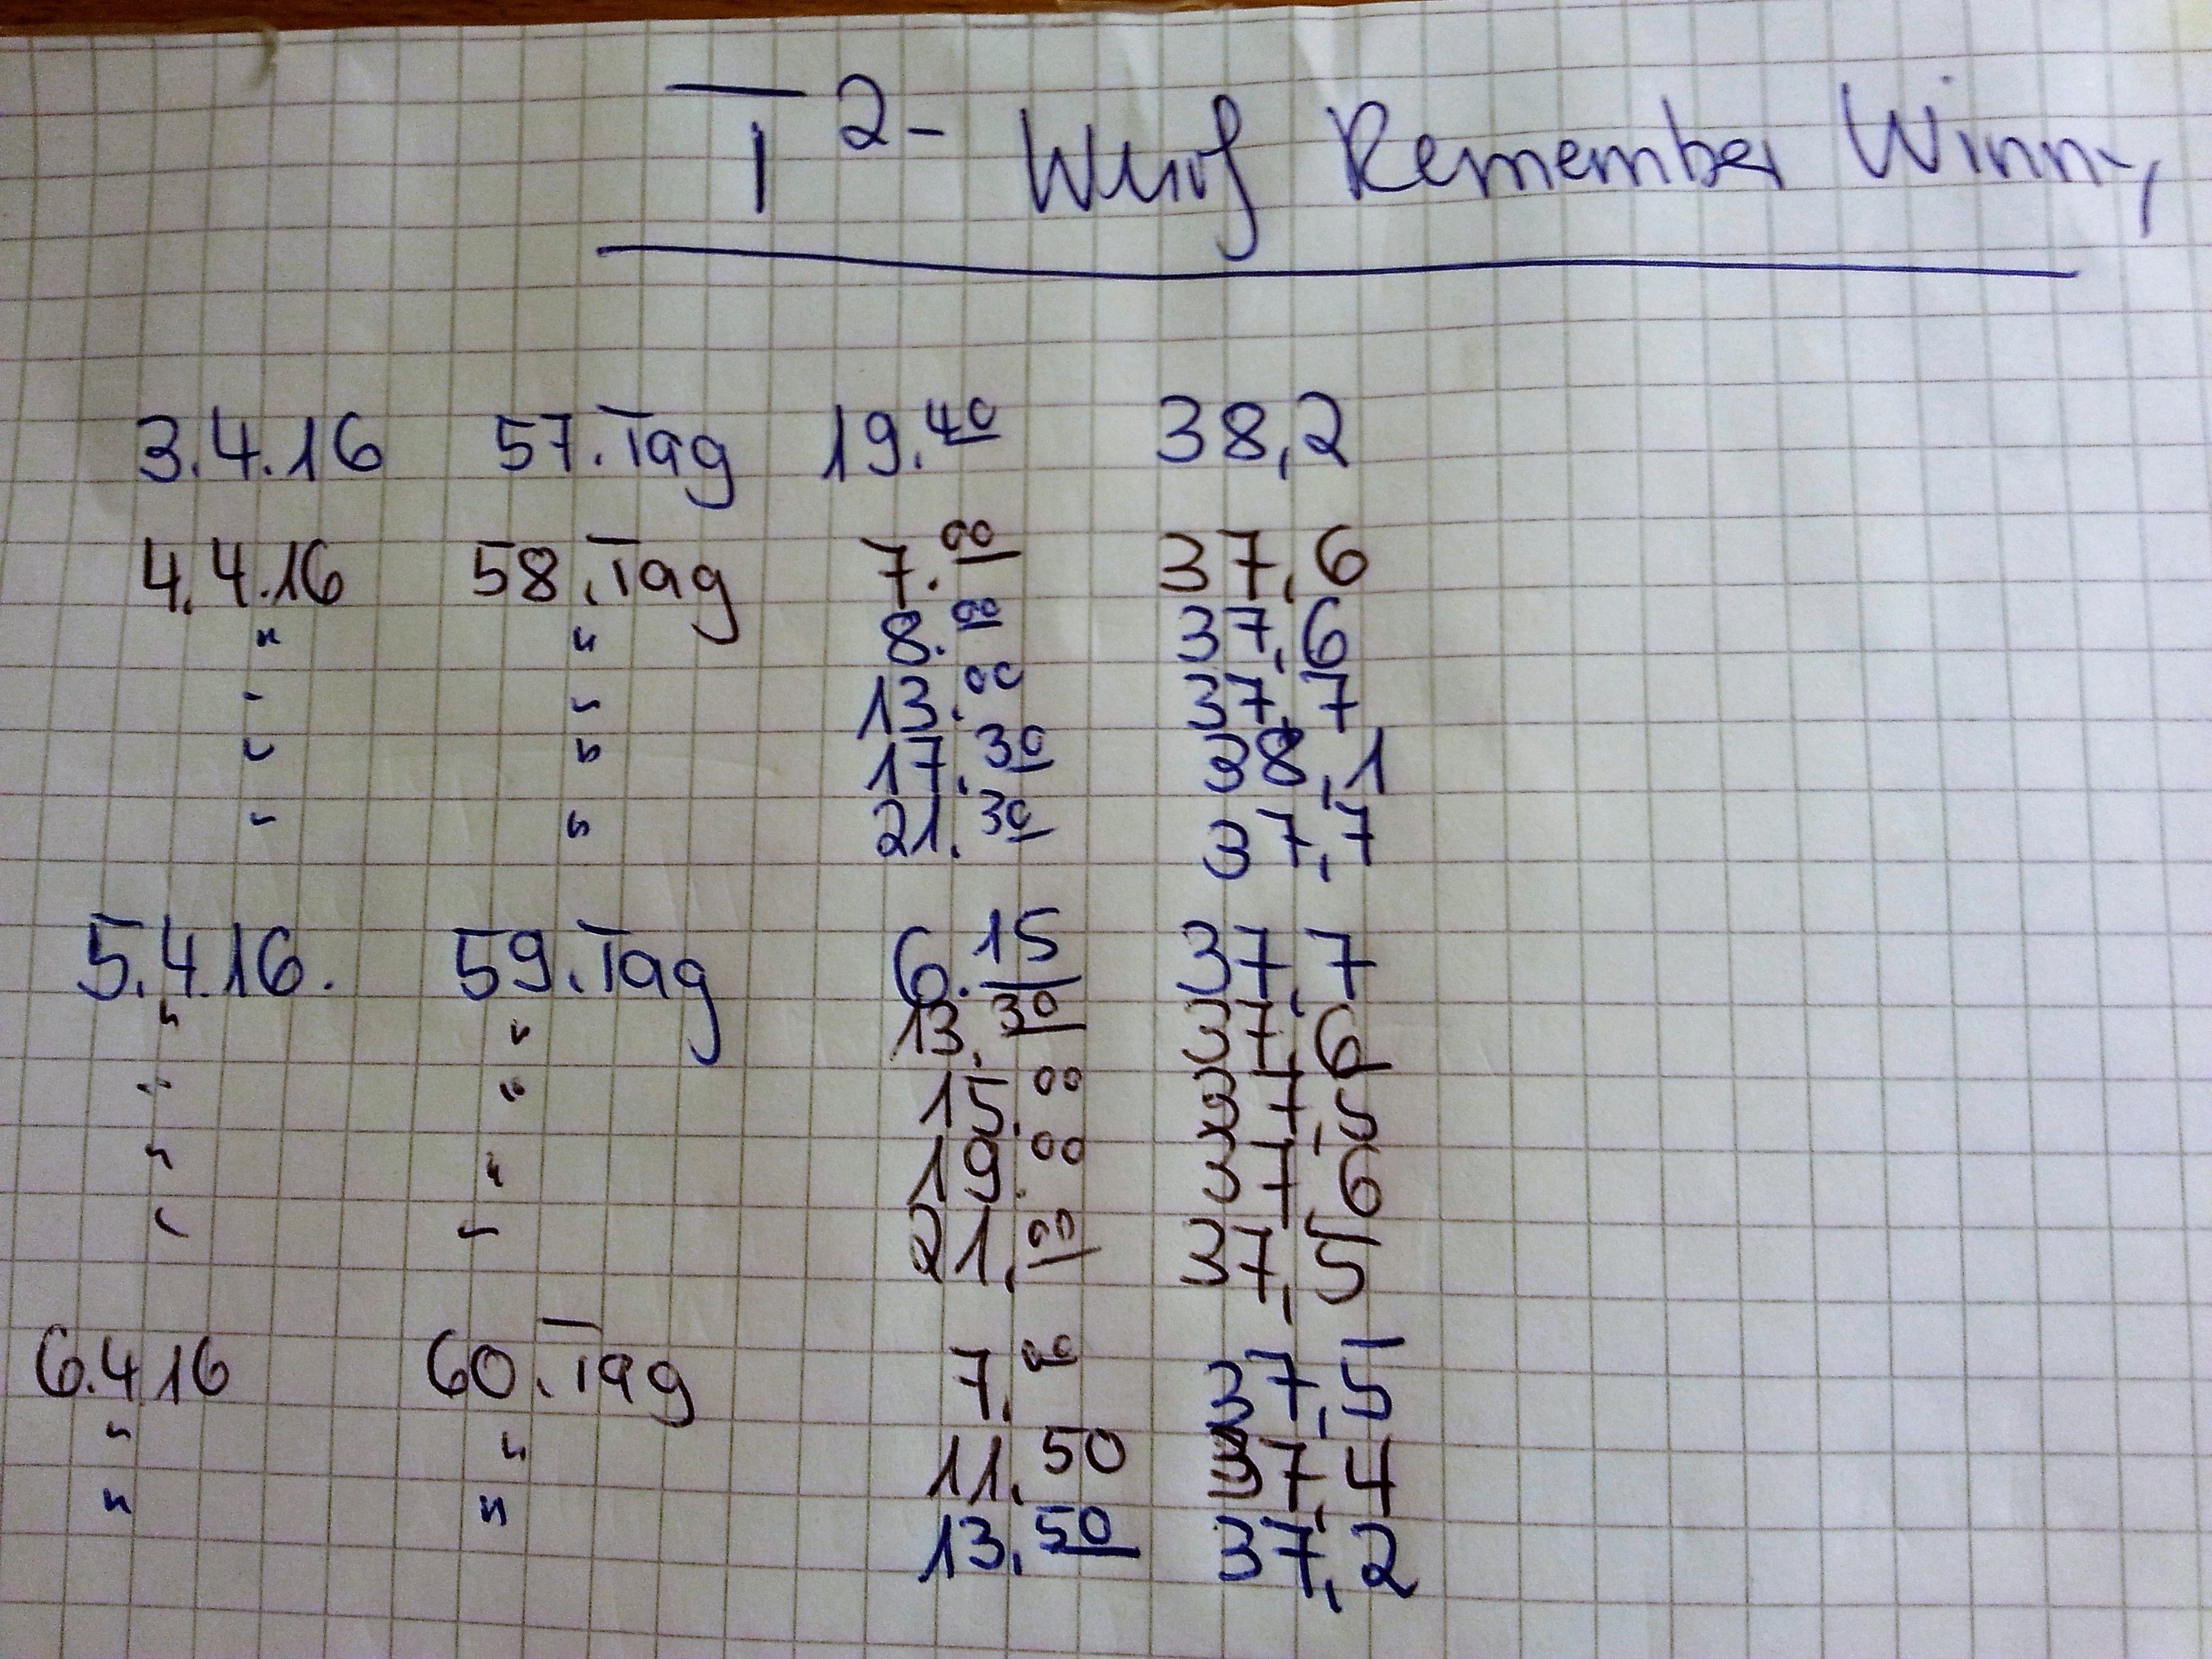 T²- Wurf Remember Winny
3.4.16 57.Tag 19.40 38,2
4.4.16 58.Tag 7.00 37,6
" " 8.00 37,6
" " 13.00 37,7
" " 17.30 38,1
" " 21.30 37,7
5.4.16. 59.Tag 6.15 37,7
" " 13.30 37,6
" " 15.00 37,5
" " 19.00 37,6
" " 21.00 37,5
6.4.16 60.Tag 7.00 37,5
" " 11.50 37,4
" " 13.50 37,2